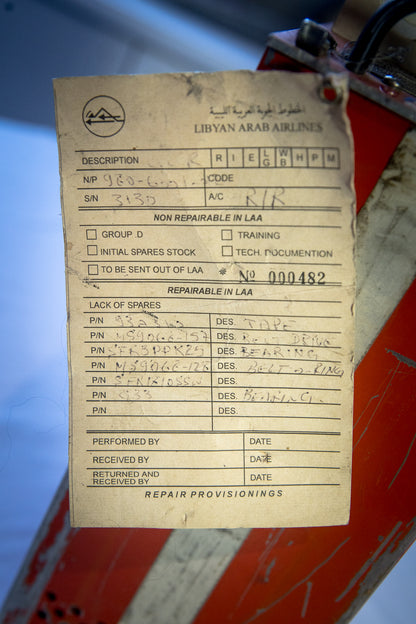 الخطوط الجوية العربية الليبية
LIBYAN ARAB AIRLINES
DESCRIPTION R I E L/G W/B H P M
N/P CODE
S/N 3130 A/C R/R
NON REPAIRABLE IN LAA
GROUP .D TRAINING
INITIAL SPARES STOCK TECH. DOCUMENTION
TO BE SENT OUT OF LAA * Nº 000482
REPAIRABLE IN LAA
LACK OF SPARES
P/N DES. TAPE
P/N DES. BELT DRIVE
P/N DES. BEARING
P/N DES. BELT O-RING
P/N DES.
P/N DES. BEARING
P/N DES.
PERFORMED BY DATE
RECEIVED BY DATE
RETURNED AND RECEIVED BY DATE
REPAIR PROVISIONINGS